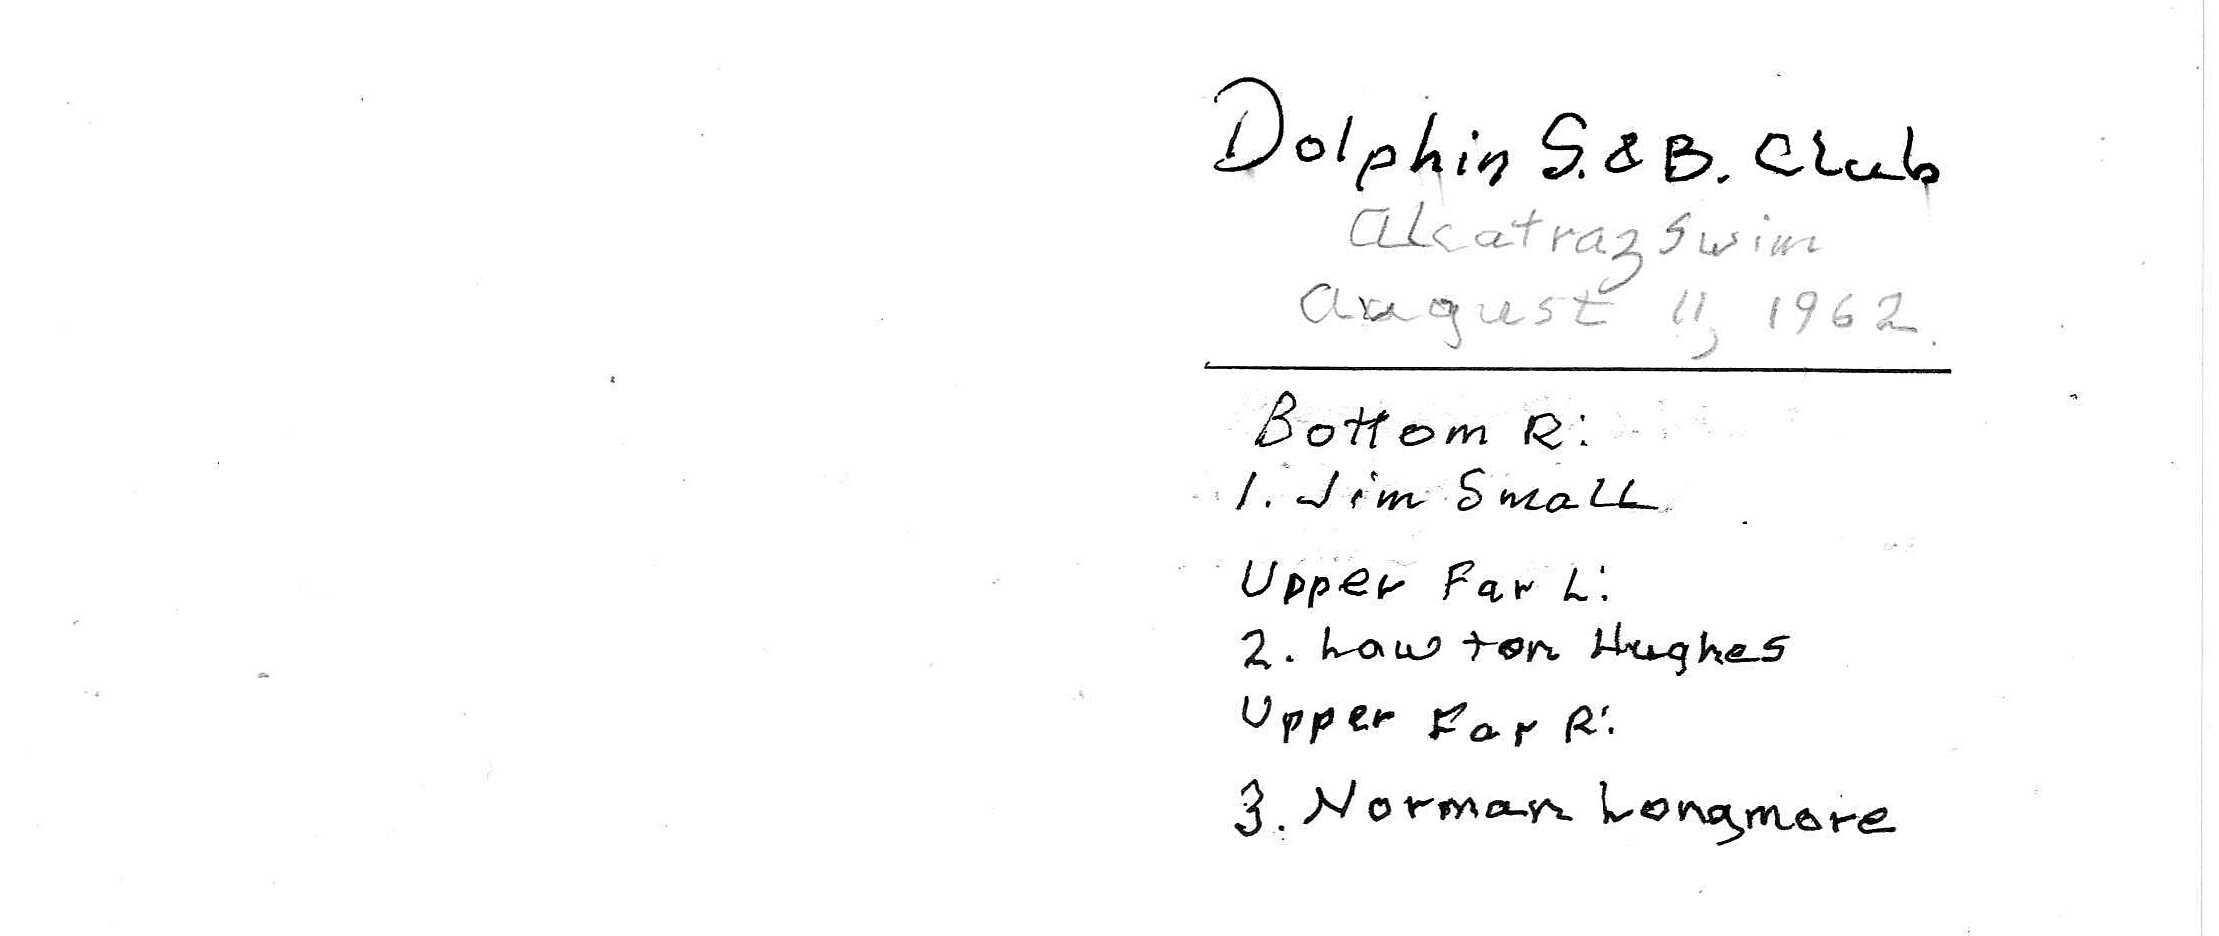 Dolphin S. & B. Club
Alcatraz Swim
August 11, 1962.
Bottom R:
1. Jim Small
Upper Far L:
2. Lawton Hughes
Upper Far R:
3. Norman Longmore